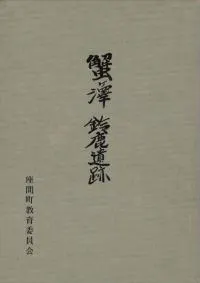 蟹ケ澤
鈴鹿遺跡
座間町教育委員会